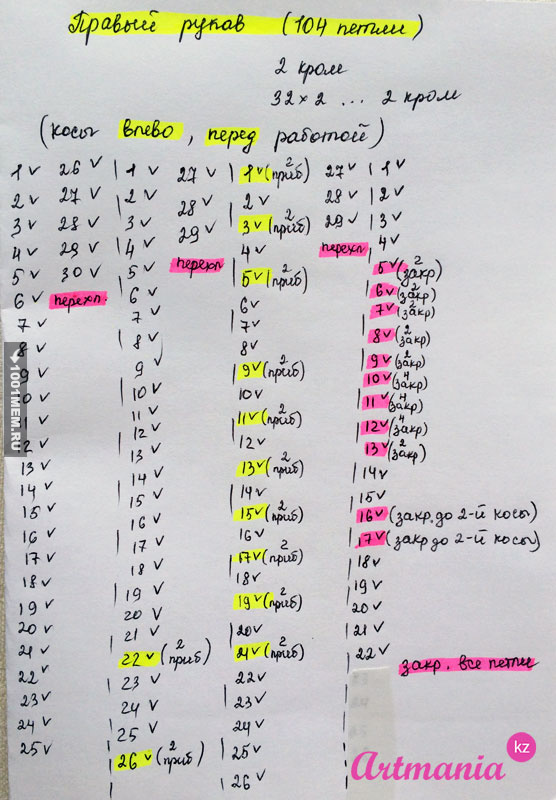 Правый рукав (104 петли)
2 кром
32×2 ... 2 кром
(косы влево, перед работой)
1 ✓
2 ✓
3 ✓
4 ✓
5 ✓
6 ✓
7 ✓
8 ✓
9 ✓
10 ✓
11 ✓
12 ✓
13 ✓
14 ✓
15 ✓
16 ✓
17 ✓
18 ✓
19 ✓
20 ✓
21 ✓
22 ✓
23 ✓
24 ✓
25 ✓
26 ✓
27 ✓
28 ✓
29 ✓
30 ✓
перехл.
1 ✓
2 ✓
3 ✓
4 ✓
5 ✓
6 ✓
7 ✓
8 ✓
9 ✓
10 ✓
11 ✓
12 ✓
13 ✓
14 ✓
15 ✓
16 ✓
17 ✓
18 ✓
19 ✓
20 ✓
21 ✓
22 ✓ (2 приб)
23 ✓
24 ✓
25 ✓
26 ✓ (2 приб)
27 ✓
28 ✓
29 ✓
перехл
1 ✓ (2 приб)
2 ✓
3 ✓ (2 приб)
4 ✓
5 ✓ (2 приб)
6 ✓
7 ✓
8 ✓
9 ✓ (2 приб)
10 ✓
11 ✓ (2 приб)
12 ✓
13 ✓ (2 приб)
14 ✓
15 ✓ (2 приб)
16 ✓
17 ✓ (2 приб)
18 ✓
19 ✓ (2 приб)
20 ✓
21 ✓ (2 приб)
22 ✓
23 ✓
24 ✓
25 ✓
26 ✓
27 ✓
28 ✓
29 ✓
перехл
1 ✓
2 ✓
3 ✓
4 ✓
5 ✓ (2 закр)
6 ✓ (2 закр)
7 ✓ (2 закр)
8 ✓ (2 закр)
9 ✓ (2 закр)
10 ✓ (4 закр)
11 ✓ (4 закр)
12 ✓ (4 закр)
13 ✓ (2 закр)
14 ✓
15 ✓
16 ✓ (закр. до 2-й косы)
17 ✓ (закр до 2-й косы)
18 ✓
19 ✓
20 ✓
21 ✓
22 ✓
закр. все петли
1001MEM.RU
Artmania kz